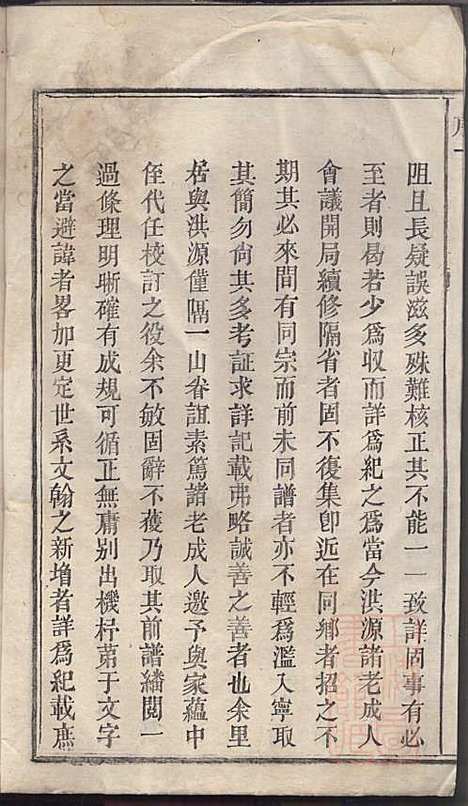 阻且長疑誤滋多殊難核正其不能一一致詳固事有必
至者則曷若少爲収而詳爲紀之爲當今洪源諸老成人
會議開局續修隔省者固不復集卽近在同鄉者招之不
期其必來間有同宗而前未同譜者亦不輕爲濫入寧取
其簡勿尙其多考証求詳記載弗略誠善之善者也余里
居與洪源僅隔一山眷誼素篤諸老成人邀予與家蘊中
侄代任校訂之役余不敏固辭不獲乃取其前譜繙閱一
過條理明晰確有成規可循正無庸别出機杼苐于文字
之當避諱者畧加更定世系文翰之新增者詳爲紀載庶